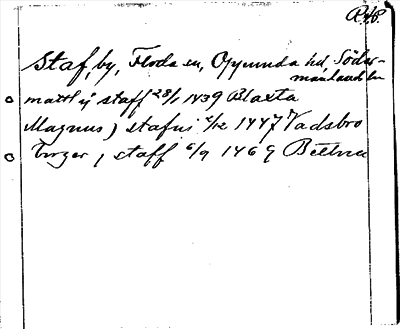 Staf, by, Floda sn, Oppunda hd, Söder-
manlands län
matts ij staff 28/1 1439 Blaxta
Magnus j stafui 2/12 1447 Vadsbro
Birger j staff 6/9 1469 Bettna